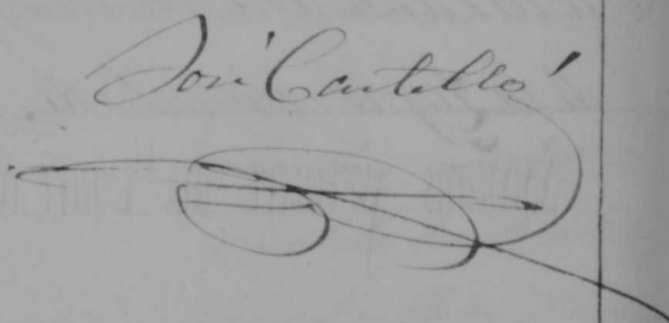 José Castelló